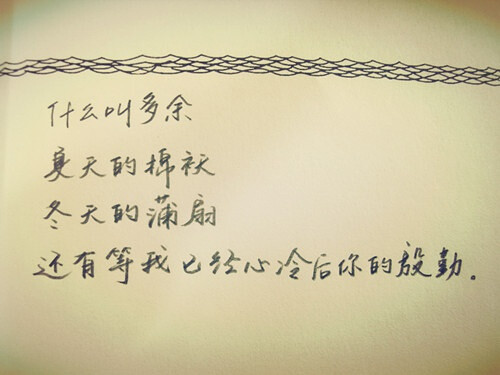 什么叫多余
夏天的棉袄
冬天的蒲扇
还有等我已经心冷后你的殷勤。